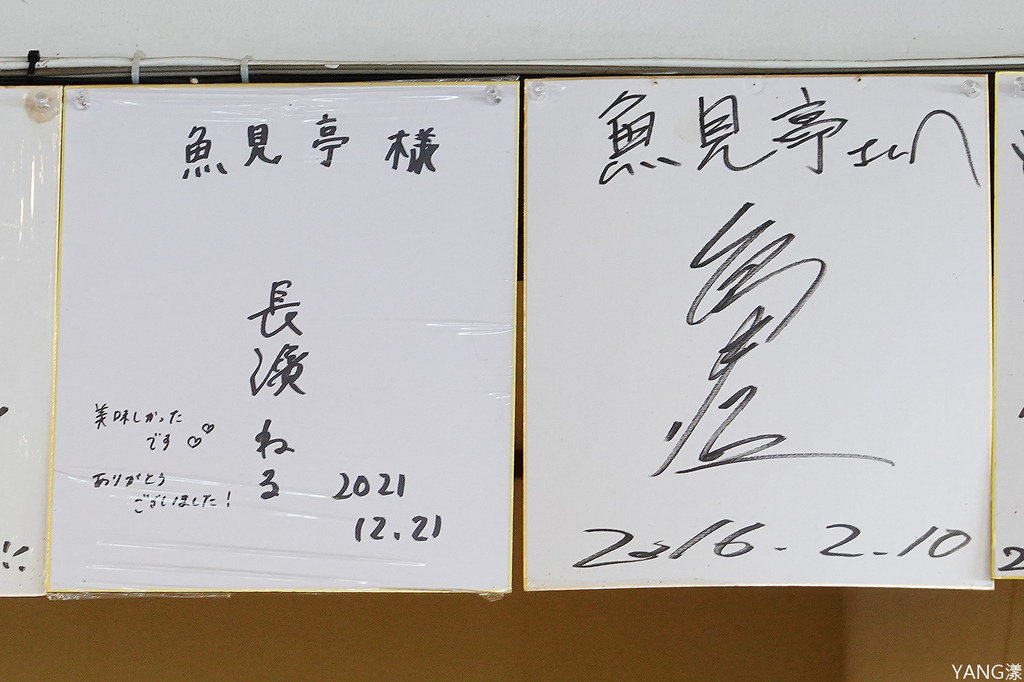 魚見亭 様
長濱ねる
美味しかった
です♡♡
ありがとう
ございました!
2021
12.21
魚見亭さん
2016.2.10
YANG漾